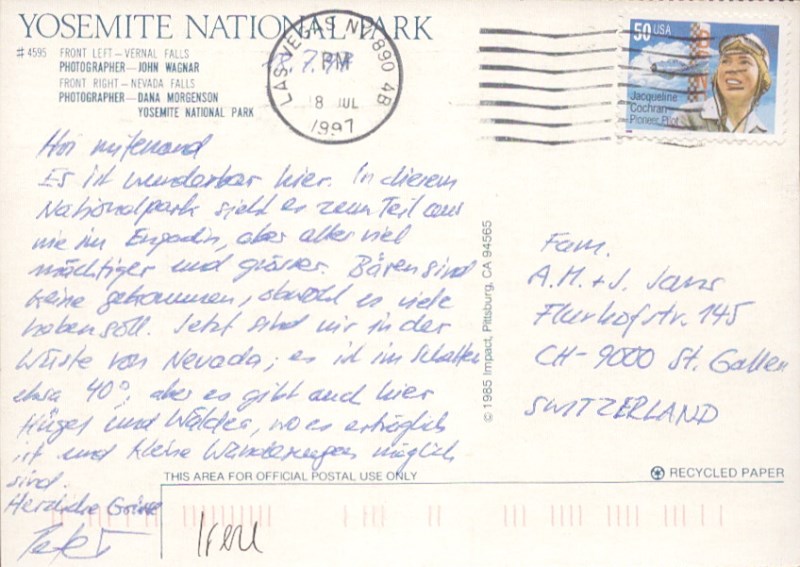 YOSEMITE NATIONAL PARK
#4595 FRONT LEFT – VERNAL FALLS
PHOTOGRAPHER – JOHN WAGNAR
FRONT RIGHT – NEVADA FALLS
PHOTOGRAPHER – DANA MORGENSON
YOSEMITE NATIONAL PARK
LAS VEGAS NV 890 4B
PM
8 JUL
1997
50 USA
Jacqueline
Cochran
Pioneer Pilot
Hoi mitenand
Es ist wunderbar hier. In diesem
Nationalpark sieht es zum Teil aus
wie im Engadin, aber alles viel
mächtiger und grösser. Bären sind
keine gekommen, obwohl es viele
haben soll. Jetzt sind wir in der
Wüste von Nevada; es ist im Schatten
etwa 40°, aber es gibt auch hier
Hügel und Wälder, wo es erträglich
ist und kleine Wanderungen möglich
sind.
Herzliche Grüsse
© 1985 Impact, Pittsburg, CA 94565
Fam.
A.M. + J. Jans
Flurhofstr. 145
CH-9000 St. Gallen
SWITZERLAND
THIS AREA FOR OFFICIAL POSTAL USE ONLY
RECYCLED PAPER